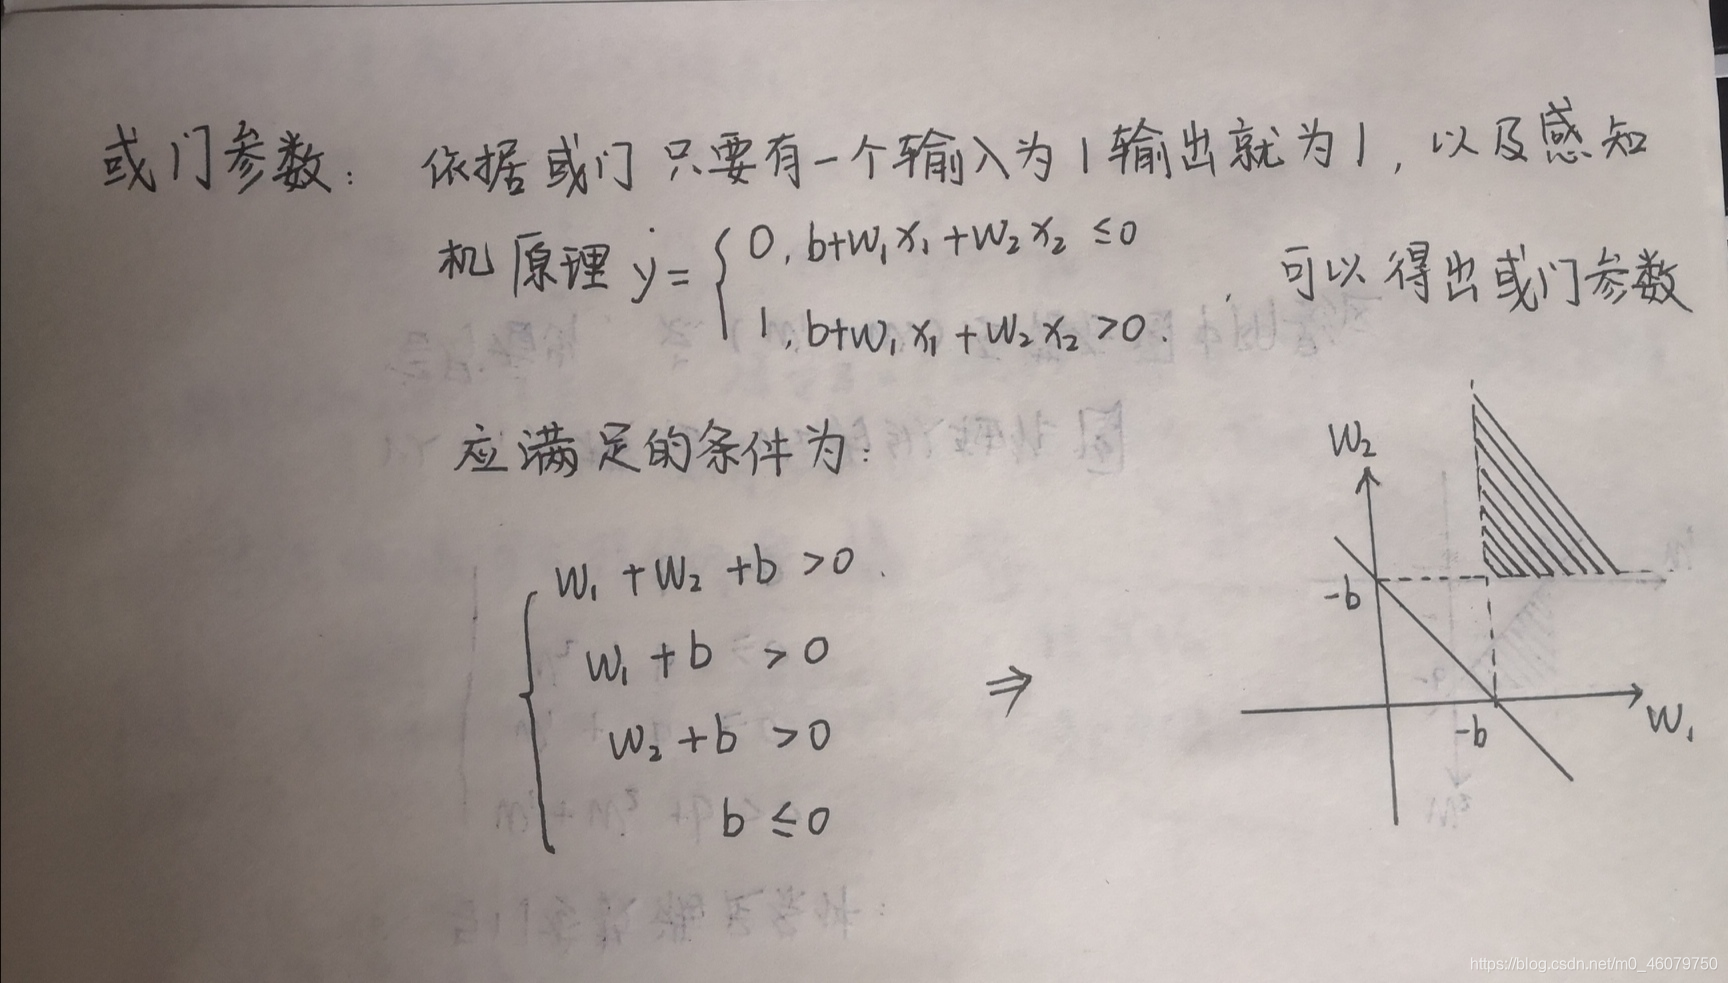 或门参数: 依据或门只要有一个输入为1输出就为1, 以及感知
机原理 y = { 0, b+w₁x₁+w₂x₂ ≤0
1, b+w₁x₁+w₂x₂ >0.
, 可以得出或门参数
应满足的条件为:
{ w₁ + w₂ + b >0.
w₁ + b >0
w₂ + b >0
b ≤ 0
⇒
w₂
-b
-b
w₁
https://blog.csdn.net/m0_46079750